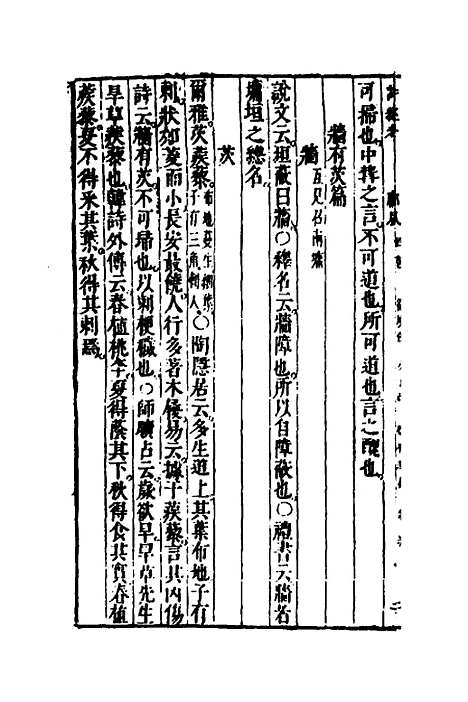 可埽也中冓之言不可道也所可道也言之醜也
牆有茨篇
牆 互見召南牆
說文云垣蔽曰牆○釋名云牆障也所以自障蔽也○禮書云牆者
墉垣之總名
茨
爾雅茨蒺藜 布地蔓生細葉子有三角刺人 ○陶隱居云多生道上其葉布地子有
刺狀如菱而小長安最饒人行多著木屐易云據于蒺藜言其凶傷
詩云牆有茨不可埽也以刺梗穢也○師曠占云歲欲旱旱草先生
旱草蒺藜也韓詩外傳云春植桃李夏得蔭其下秋得食其實春植
蒺藜夏不得采其葉秋得其刺焉